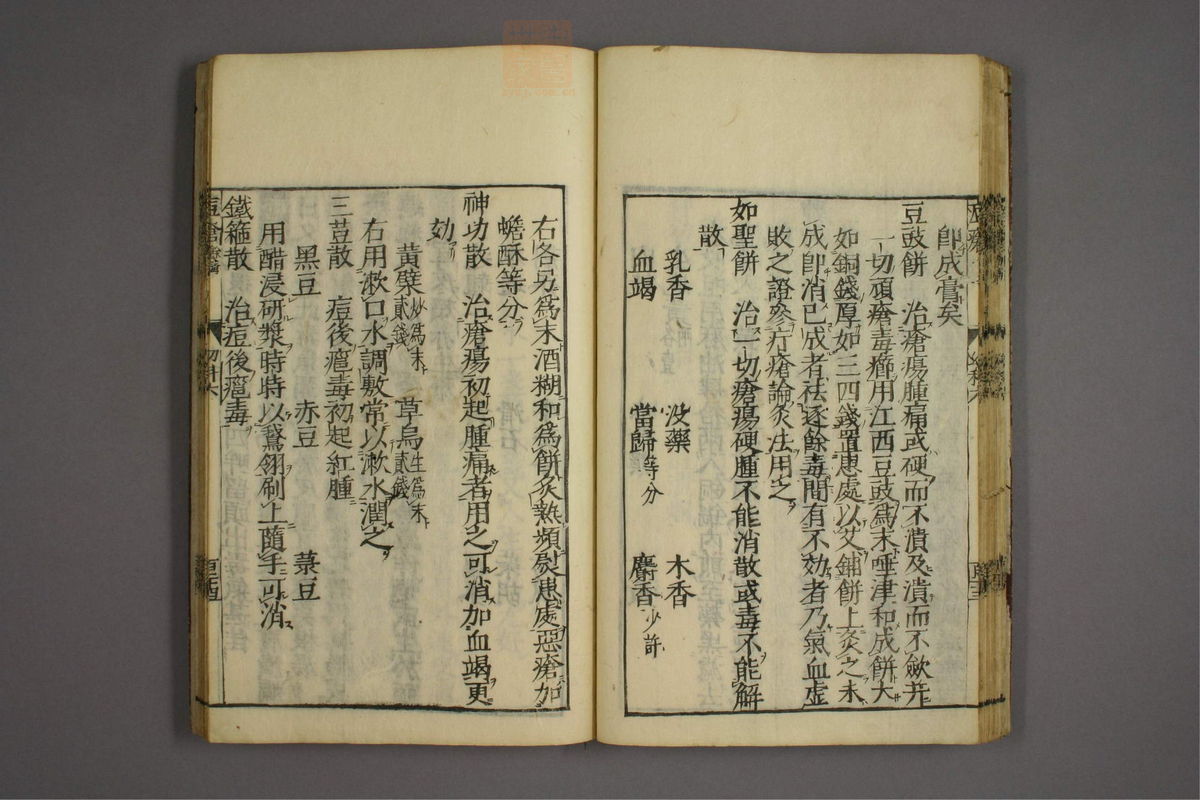 即成膏矣
豆豉餅　治瘡瘍腫痛或硬而不潰及潰而不斂并
一切頑瘡毒癤用江西豆豉為末唾津和成餅大
如銅錢厚如三四錢置患處以艾鋪餅上灸之未
成即消已成者祛逐餘毒間有不効者乃氣血虛
敗之證參疔瘡論灸法用之
如聖餅　治一切瘡瘍硬腫不能消散或毒不能解
散
乳香　沒藥　木香
血竭　當歸等分　麝香少許
右各另為末酒糊和為餅炙熱頻熨患處惡瘡加
蟾酥等分
神功散　治瘡瘍初起腫痛者用之可消加血竭更
効
黃檗炒為末貳錢　草烏生為末貳錢
右用漱口水調敷常以漱水潤之
三荳散　痘後癰毒初起紅腫
黑豆　赤豆　菉豆
用醋浸研漿時時以鵞翎刷上隨手可消
鐵箍散　治痘後癰毒